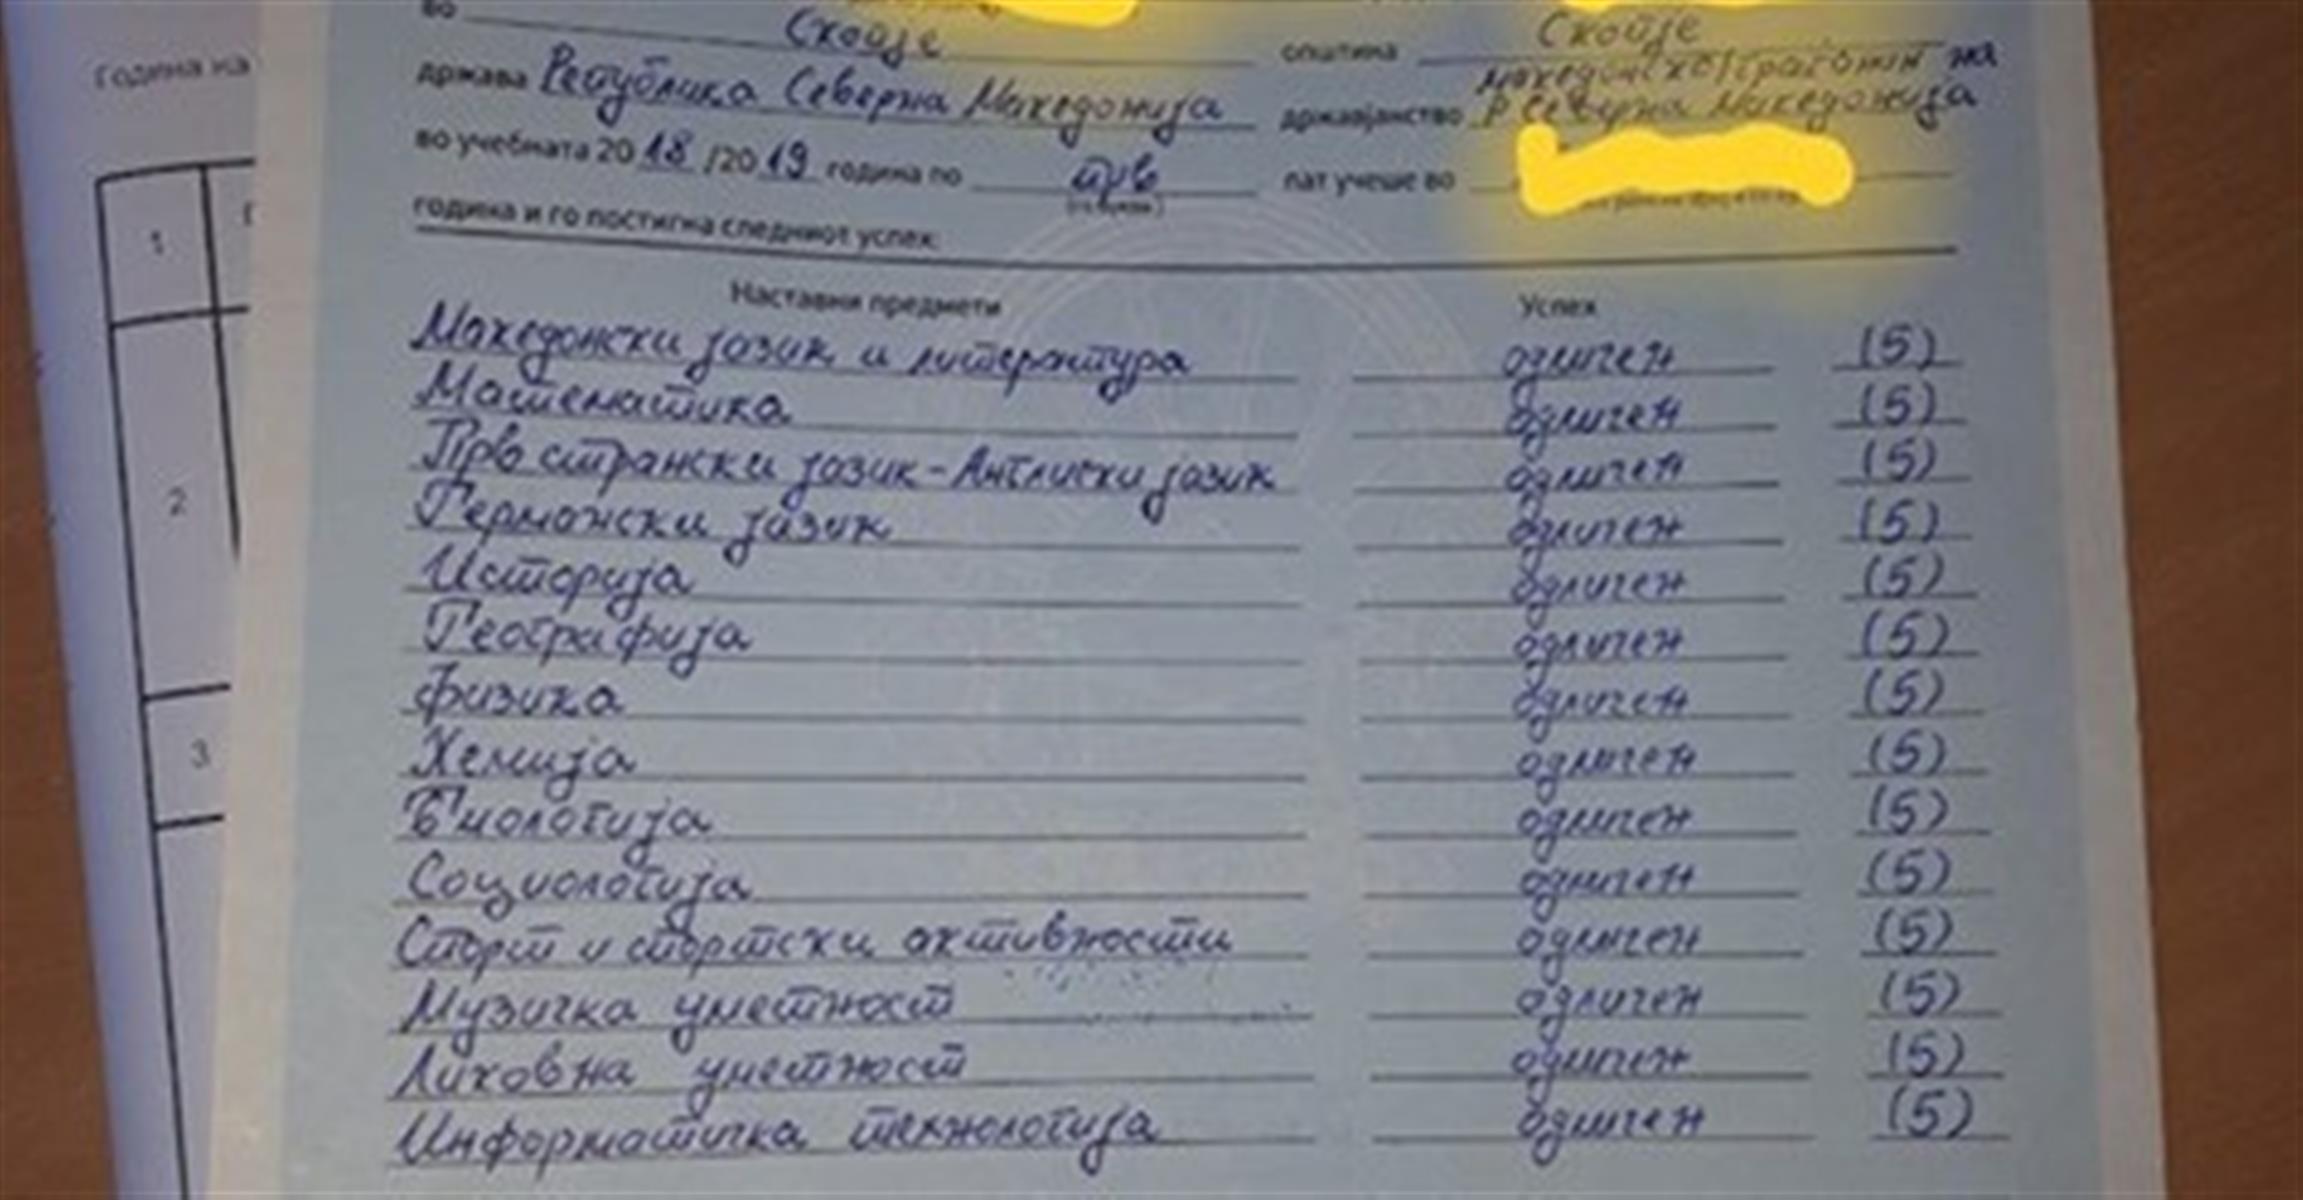 Година на
1
2
3
во Скопје општина Скопје
држава Република Северна Македонија државјанство македонско/граѓанин на Р Северна Македонија
во учебната 2018/2019 година по прв пат учеше во
година и го постигна следниот успех:
Наставни предмети Успех
Македонски јазик и литература одличен (5)
Математика одличен (5)
Прв странски јазик-Англиски јазик одличен (5)
Германски јазик одличен (5)
Историја одличен (5)
Географија одличен (5)
Физика одличен (5)
Хемија одличен (5)
Биологија одличен (5)
Социологија одличен (5)
Спорт и спортски активности одличен (5)
Музичка уметност одличен (5)
Ликовна уметност одличен (5)
Информатичка технологија одличен (5)